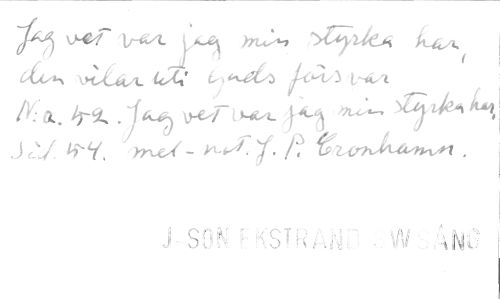 Jag vet var jag min styrka har,
den vilar uti Guds försvar
N:o. 52. Jag vet var jag min styrka har,
Sid. 54. mel-not. J. P. Cronhamn.
J-SON EKSTRAND SWSÅNG